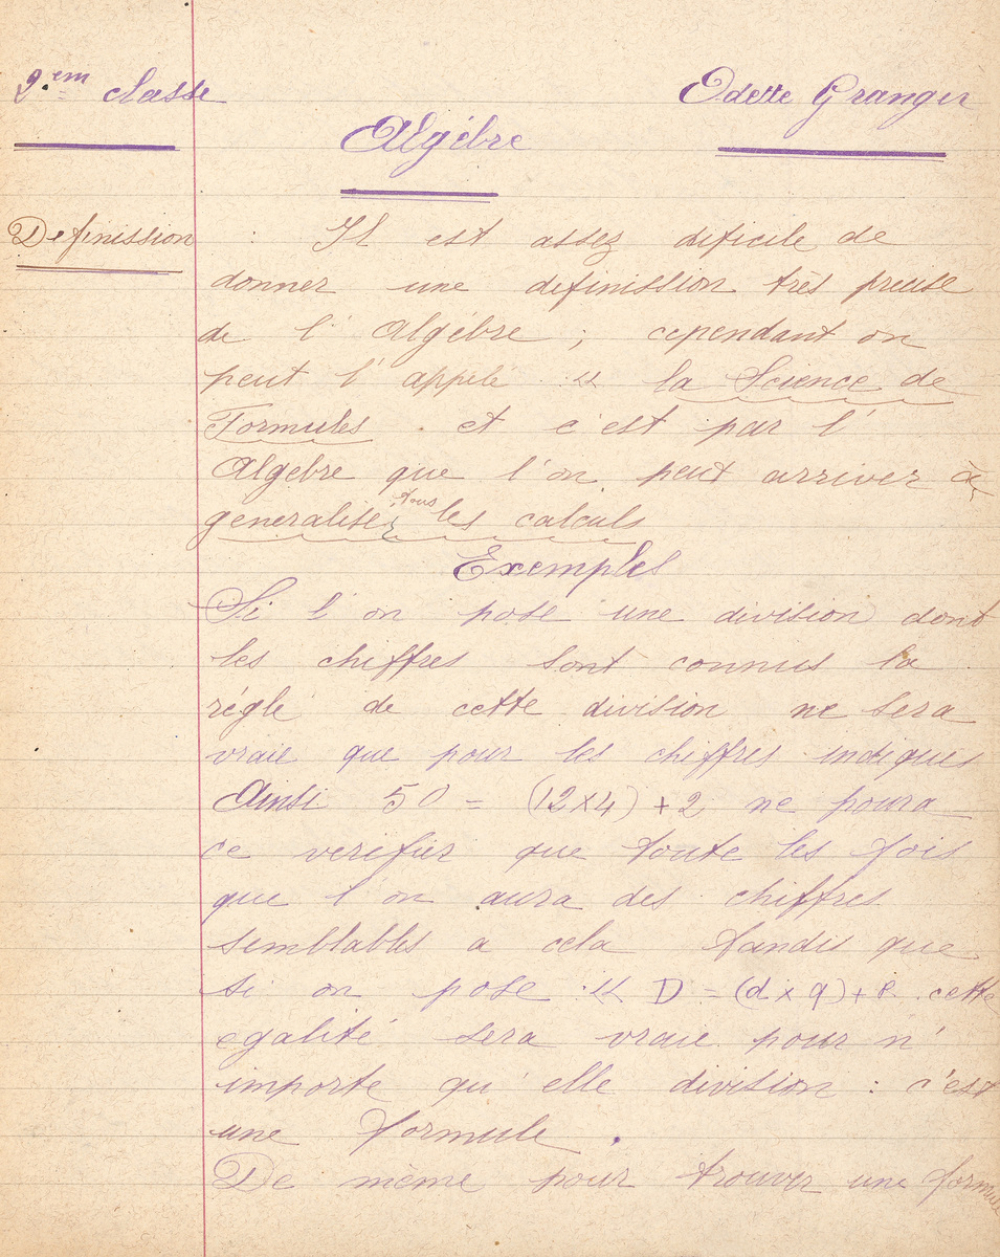 2.em classe Odette Granger
Algébre
Definission : Il est assez dificile de
donner une definission très precise
de l'Algébre ; cependant on
peut l'appelé « la Science de
Formules . et c'est par l'
Algebre que l'on peut arriver à
generalisér tous les calculs
Exemples
Si l'on pose une division dont
les chiffres sont connus la
régle de cette division ne sera
vraie que pour les chiffres indiques
Ainsi 50 = (12x4) + 2 ne poura
ce verifier que toute les fois
que l'on aura des chiffres
semblables a cela tandis que
si on pose : « D = (d x q) + R . cette
egalité sera vraie pour n'
importe qu'elle division : c'est
une formule .
De même pour trouver une formule